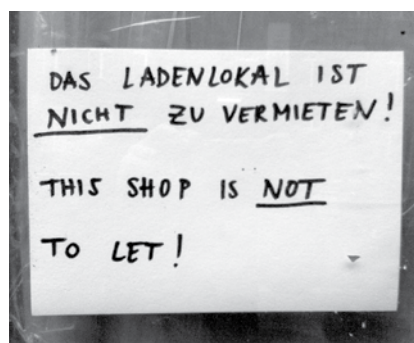 DAS LADENLOKAL IST
NICHT ZU VERMIETEN!
THIS SHOP IS NOT
TO LET!